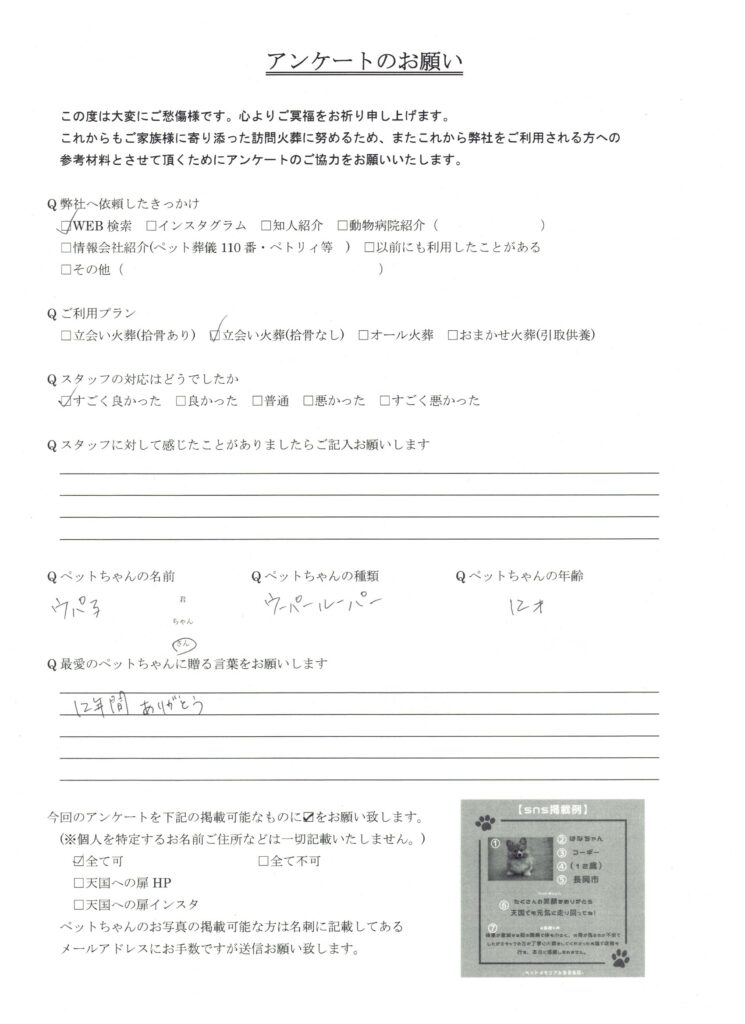 アンケートのお願い
この度は大変にご愁傷様です。心よりご冥福をお祈り申し上げます。
これからもご家族様に寄り添った訪問火葬に努めるため、またこれから弊社をご利用される方への
参考材料とさせて頂くためにアンケートのご協力をお願いいたします。
Q 弊社へ依頼したきっかけ
☑WEB 検索 □インスタグラム □知人紹介 □動物病院紹介（ ）
□情報会社紹介(ペット葬儀 110 番・ペトリィ等 ) □以前にも利用したことがある
□その他（ ）
Q ご利用プラン
□立会い火葬(拾骨あり) ☑立会い火葬(拾骨なし) □オール火葬 □おまかせ火葬(引取供養)
Q スタッフの対応はどうでしたか
☑すごく良かった □良かった □普通 □悪かった □すごく悪かった
Q スタッフに対して感じたことがありましたらご記入お願いします
Q ペットちゃんの名前 Q ペットちゃんの種類 Q ペットちゃんの年齢
ウパ子 君 ウーパールーパー 12才
ちゃん
さん
Q 最愛のペットちゃんに贈る言葉をお願いします
12年間 ありがとう
今回のアンケートを下記の掲載可能なものに☑をお願い致します。
(※個人を特定するお名前ご住所などは一切記載いたしません。)
☑全て可 □全て不可
□天国への扉 HP
□天国への扉インスタ
ペットちゃんのお写真の掲載可能な方は名刺に記載してある
メールアドレスにお手数ですが送信お願い致します。
【sns掲載例】
① ② はなちゃん
③ コーギー
④ （12歳）
⑤ 長岡市
⑥ たくさんの笑顔をありがとう
天国でも元気に走り回ってね!
⑦